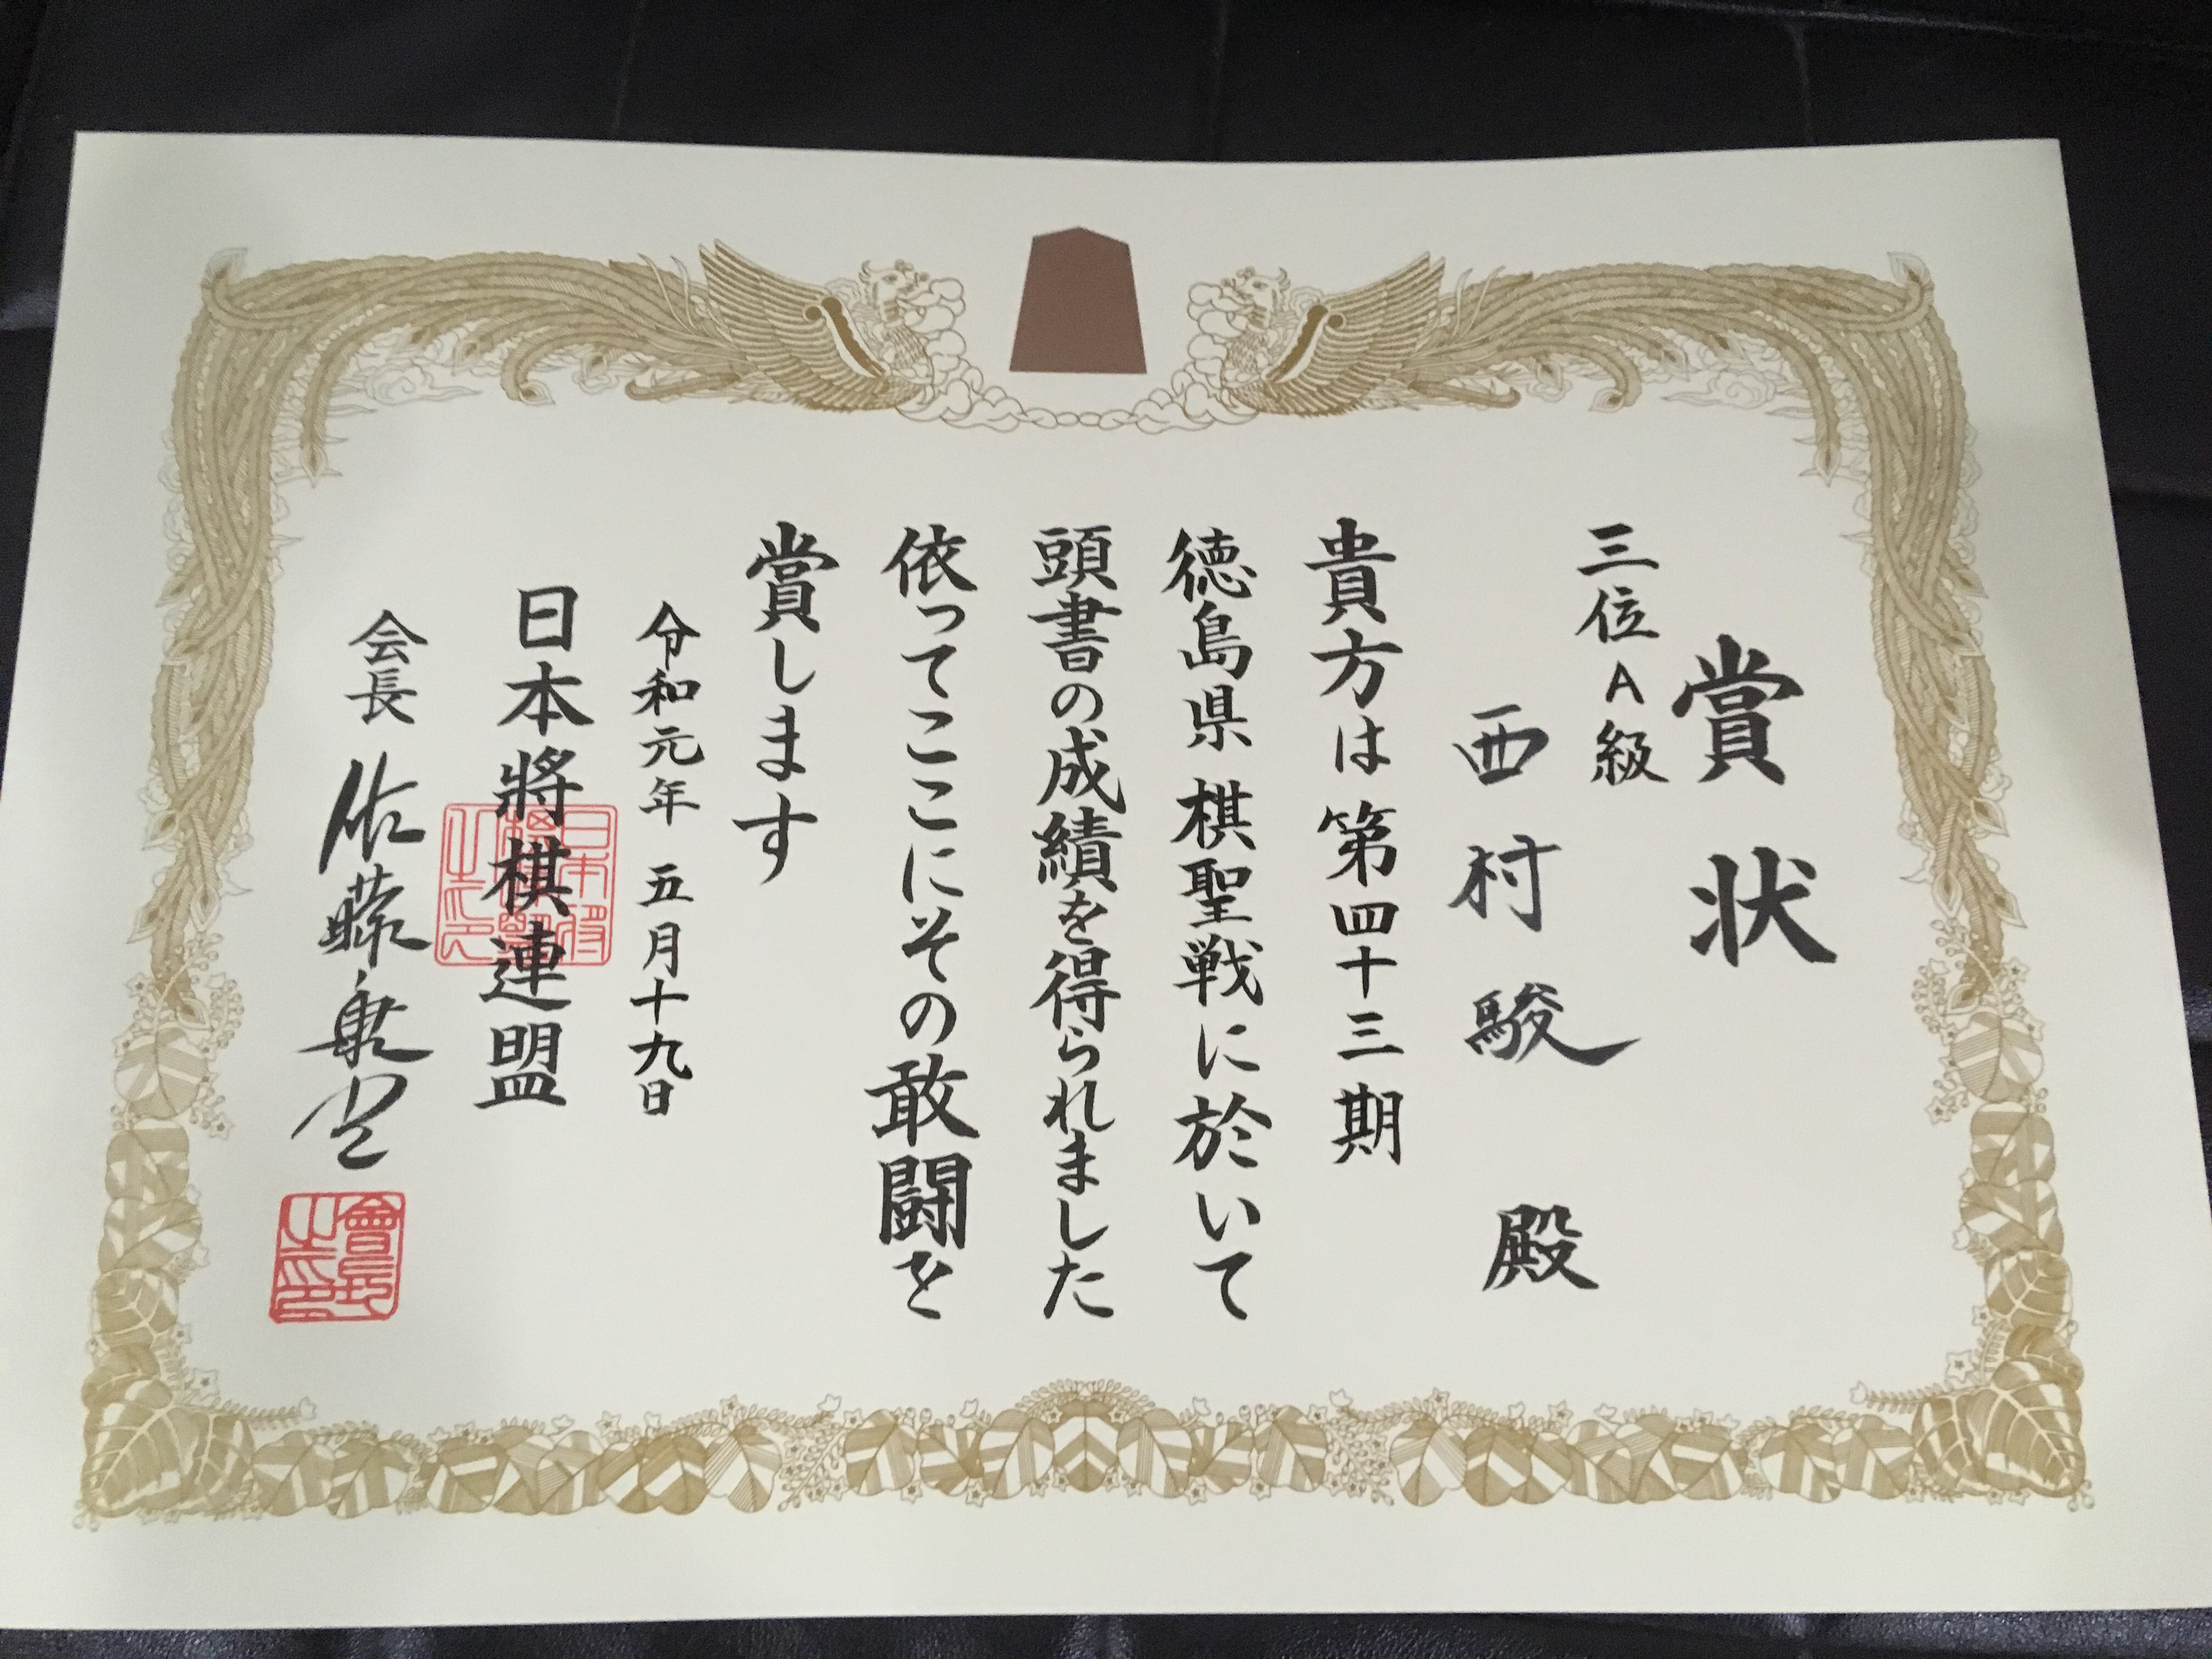 賞状
三位A級
西村駿 殿
貴方は第四十三期
徳島県棋聖戦に於いて
頭書の成績を得られました
依ってここにその敢闘を
賞します
令和元年 五月十九日
日本將棋連盟
日本将棋連盟之印
会長 佐藤康光
會長之印